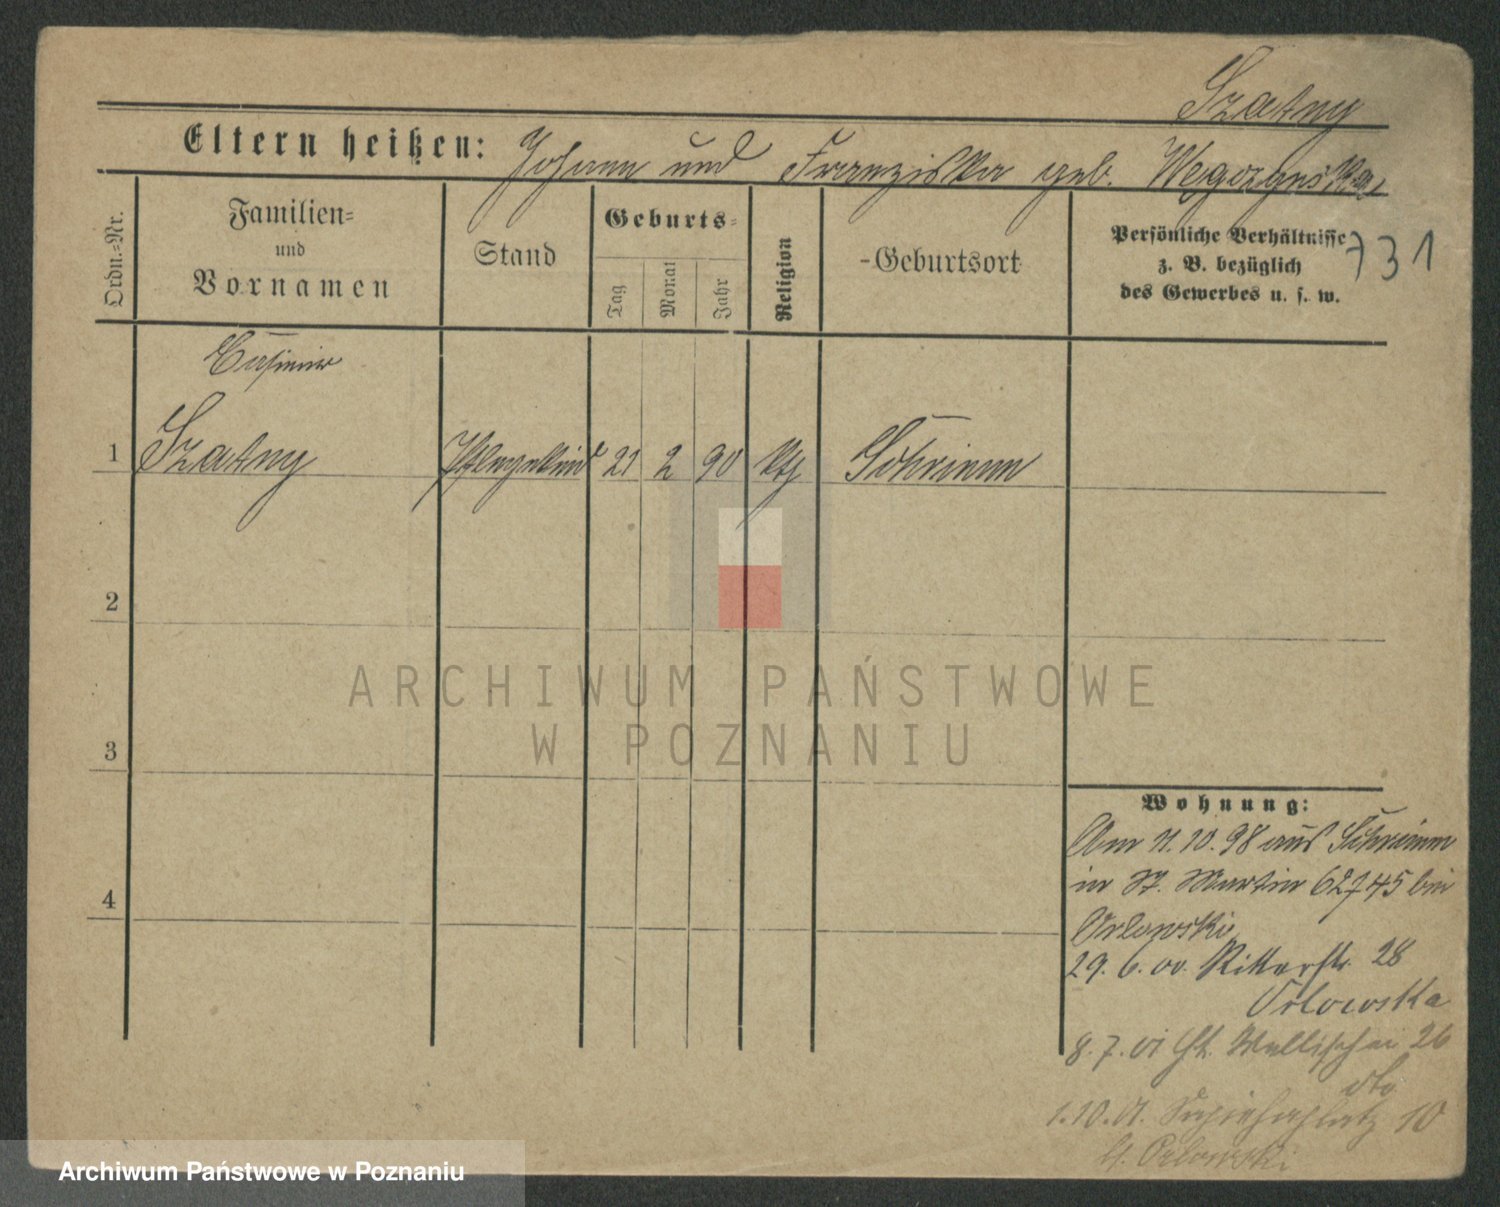 Szatny
Eltern heißen: Johann und Franziska geb.
Ordn.-Nr.
Familien-
und
Vornamen
Stand
Geburts-
Tag
Monat
Jahr
Religion
-Geburtsort
Persönliche Verhältnisse
z. B. bezüglich
des Gewerbes u. s. w.
731
Casimir
1 Szatny Pflegekind 21 2 90 kth Schrimm
2
3
4
ARCHIWUM PAŃSTWOWE
W POZNANIU
Wohnung:
Am 11.10.98 aus Schrimm
in St. Martin bei
Orlowski
29. 6. 00. Ritterstr. 28
Orlowska
8. 7. 01 Wallischei 26
dto
1.10.01. Sapiehaplatz 10
Orlowski
Archiwum Państwowe w Poznaniu